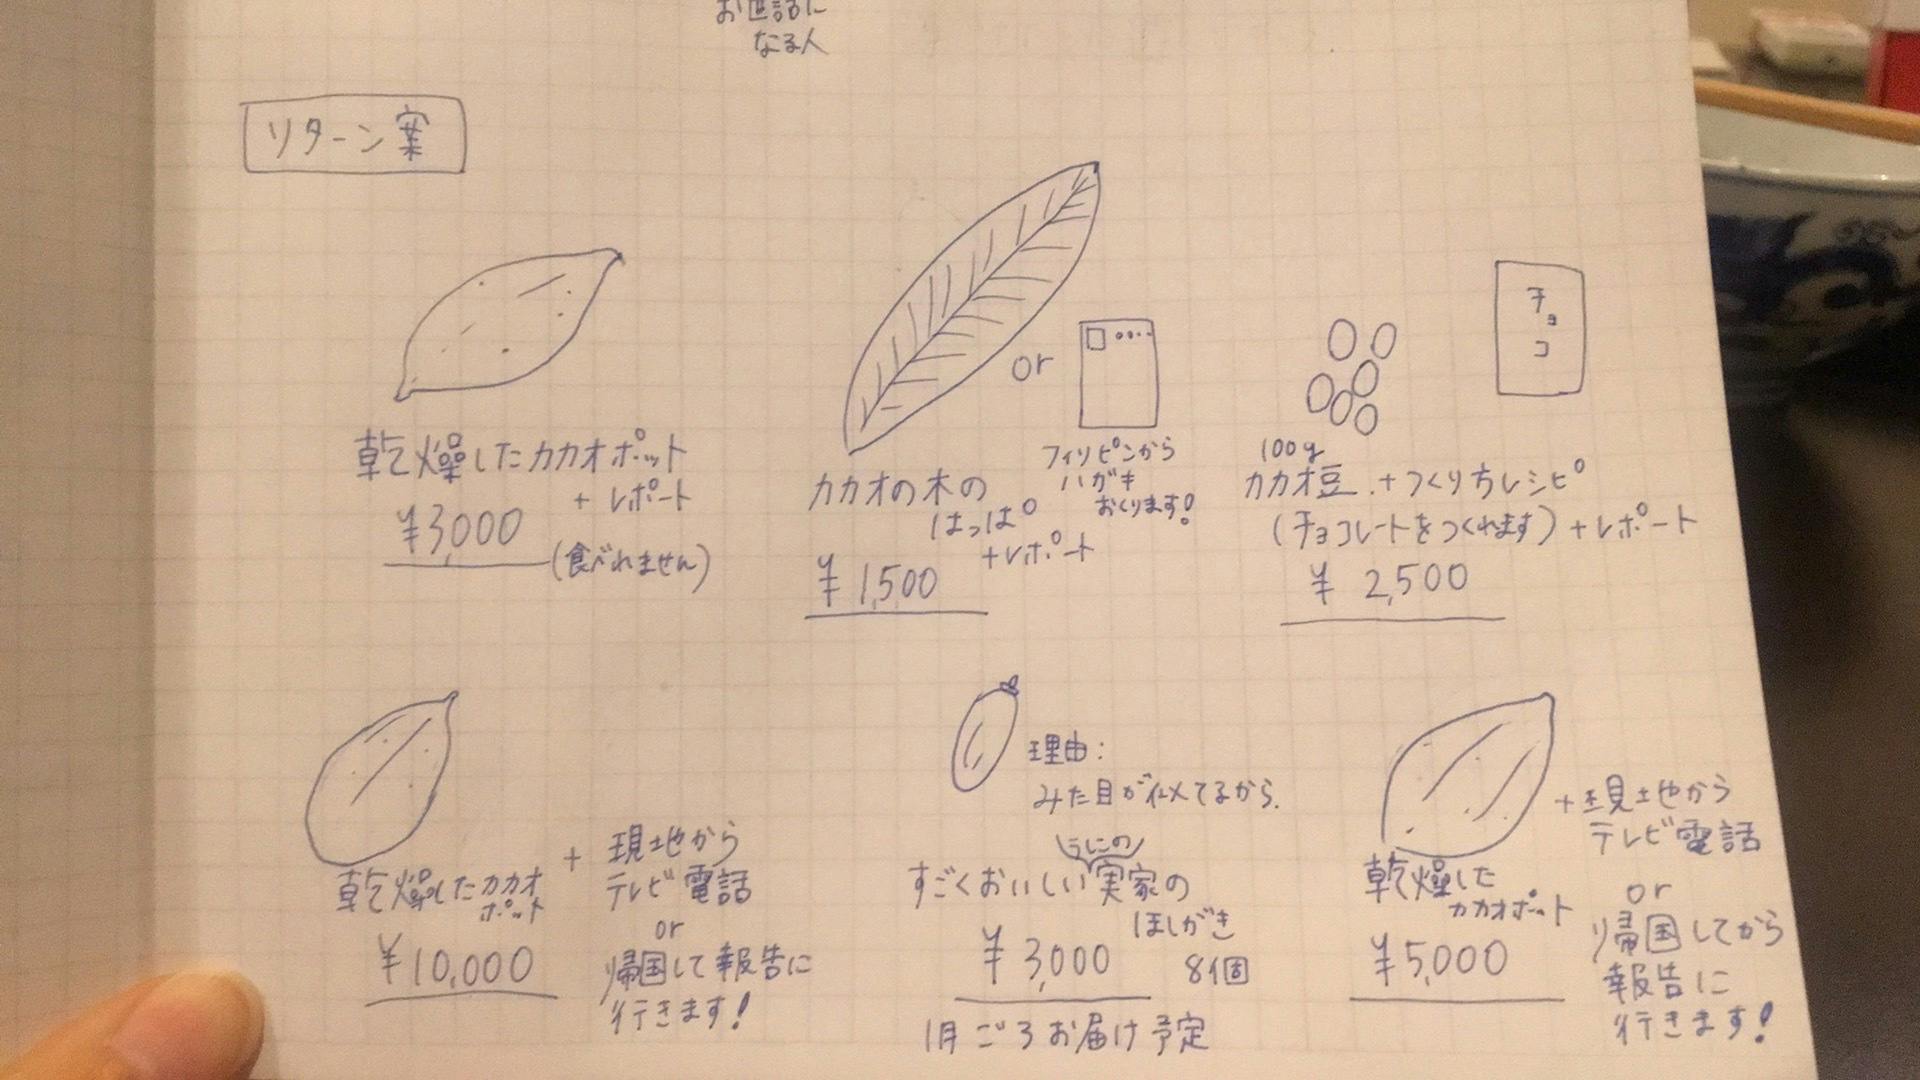 お世話に
なる人
リターン案
乾燥したカカオポット
+ レポート
¥3,000
(食べれません)
or
カカオの木の
はっぱ
+レポート
¥1,500
フィリピンから
ハガキ
おくります!
チョコ
100g
カカオ豆 + つくり方レシピ
(チョコレートをつくれます) + レポート
¥2,500
乾燥したカカオ
ポット
¥10,000
+ 現地から
テレビ電話
or
帰国して報告に
行きます!
理由:
みた目が似てるから.
うしこの
すごくおいしい実家の
ほしがき
8個
¥3,000
1月ごろお届け予定
乾燥した
カカオポット
¥5,000
+現地から
テレビ電話
or
帰国してから
報告に
行きます!